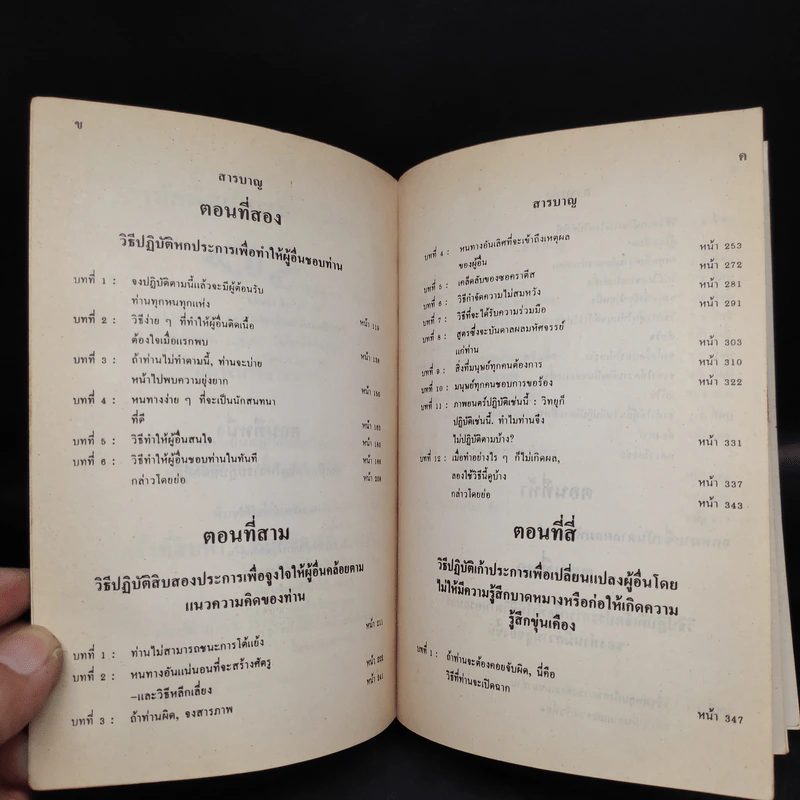 ข
สารบาญ
ตอนที่สอง
วิธีปฏิบัติหกประการเพื่อทำให้ผู้อื่นชอบท่าน
บทที่ 1 : จงปฏิบัติตามนี้แล้วจะมีผู้ต้อนรับ
ท่านทุกหนทุกแห่ง
บทที่ 2 : วิธีง่าย ๆ ที่ทำให้ผู้อื่นติดเนื้อ หน้า
ต้องใจเมื่อแรกพบ
บทที่ 3 : ถ้าท่านไม่ทำตามนี้, ท่านจะบ่าย หน้า
หน้าไปพบความยุ่งยาก
บทที่ 4 : หนทางง่าย ๆ ที่จะเป็นนักสนทนา หน้า
ที่ดี
บทที่ 5 : วิธีทำให้ผู้อื่นสนใจ หน้า
บทที่ 6 : วิธีทำให้ผู้อื่นชอบท่านในทันที หน้า
กล่าวโดยย่อ หน้า
ตอนที่สาม
วิธีปฏิบัติสิบสองประการเพื่อจูงใจให้ผู้อื่นคล้อยตาม
แนวความคิดของท่าน
บทที่ 1 : ท่านไม่สามารถชนะการโต้แย้ง หน้า 211
บทที่ 2 : หนทางอันแน่นอนที่จะสร้างศัตรู หน้า
–และวิธีหลีกเลี่ยง หน้า 241
บทที่ 3 : ถ้าท่านผิด, จงสารภาพ
ค
สารบาญ
บทที่ 4 : หนทางอันเลิศที่จะเข้าถึงเหตุผล
ของผู้อื่น หน้า 253
บทที่ 5 : เคล็ดลับของซอคราตีส หน้า 272
บทที่ 6 : วิธีกำจัดความไม่สมหวัง หน้า 281
บทที่ 7 : วิธีที่จะได้รับความร่วมมือ หน้า 291
บทที่ 8 : สูตรซึ่งจะบันดาลผลมหัศจรรย์
แก่ท่าน หน้า 303
บทที่ 9 : สิ่งที่มนุษย์ทุกคนต้องการ หน้า 310
บทที่ 10 : มนุษย์ทุกคนชอบการขอร้อง หน้า 322
บทที่ 11 : ภาพยนตร์ปฏิบัติเช่นนี้ : วิทยุก็
ปฏิบัติเช่นนี้. ทำไมท่านจึง
ไม่ปฏิบัติตามบ้าง? หน้า 331
บทที่ 12 : เมื่อทำอย่างไร ๆ ก็ไม่เกิดผล,
ลองใช้วิธีนี้ดูบ้าง หน้า 337
กล่าวโดยย่อ หน้า 343
ตอนที่สี่
วิธีปฏิบัติเก้าประการเพื่อเปลี่ยนแปลงผู้อื่นโดย
ไม่ให้มีความรู้สึกบาดหมางหรือก่อให้เกิดความ
รู้สึกขุ่นเคือง
บทที่ 1 : ถ้าท่านจะต้องคอยจับผิด, นี่คือ
วิธีที่ท่านจะเปิดฉาก หน้า 347